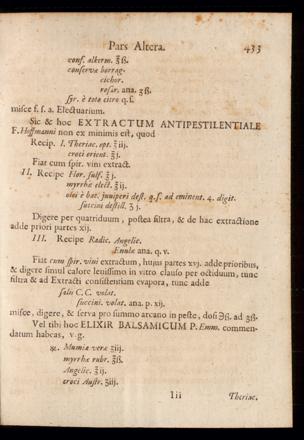 Pars Altera. 433
conf. alkerm. ℥ß.
conservæ borrag.
cichor.
rosar. ana. ʒß.
syr. è toto citro q.s.
misce f. s. a. Electuarium.
Sic & hoc EXTRACTUM ANTIPESTILENTIALE
F. Hoffmanni non ex minimis est, quod
Recip. I. Theriac. opt. ℥iij.
croci orient. ℥j.
Fiat cum spir. vini extract.
II. Recipe Flor. sulf. ℥j.
myrrhæ elect. ℥ij.
olei è bac. juniperi dest. q.s. ad eminent. 4. digit.
succini destill. ʒj.
Digere per quatriduum, postea filtra, & de hac extractione
adde priori partes xij.
III. Recipe Radic. Angelic.
Enulæ ana. q. v.
Fiat cum spir. vini extractum, hujus partes xvj. adde prioribus,
& digere simul calore lenissimo in vitro clauso per octiduum, tunc
filtra & ad Extracti consistentiam evapora, tunc adde
salis C.C. volat.
succini. volat. ana. p. xij.
misce, digere, & serva pro summo arcano in peste, dosi ℈ß. ad ʒß.
Vel tibi hoc ELIXIR BALSAMICUM P. Emm. commen-
datum habeas, v. g.
℞. Mumiæ veræ ʒiij.
myrrhæ rubr. ℥ß.
Angelic. ℥ij.
croci Austr. ʒiij.
Iii Theriac.